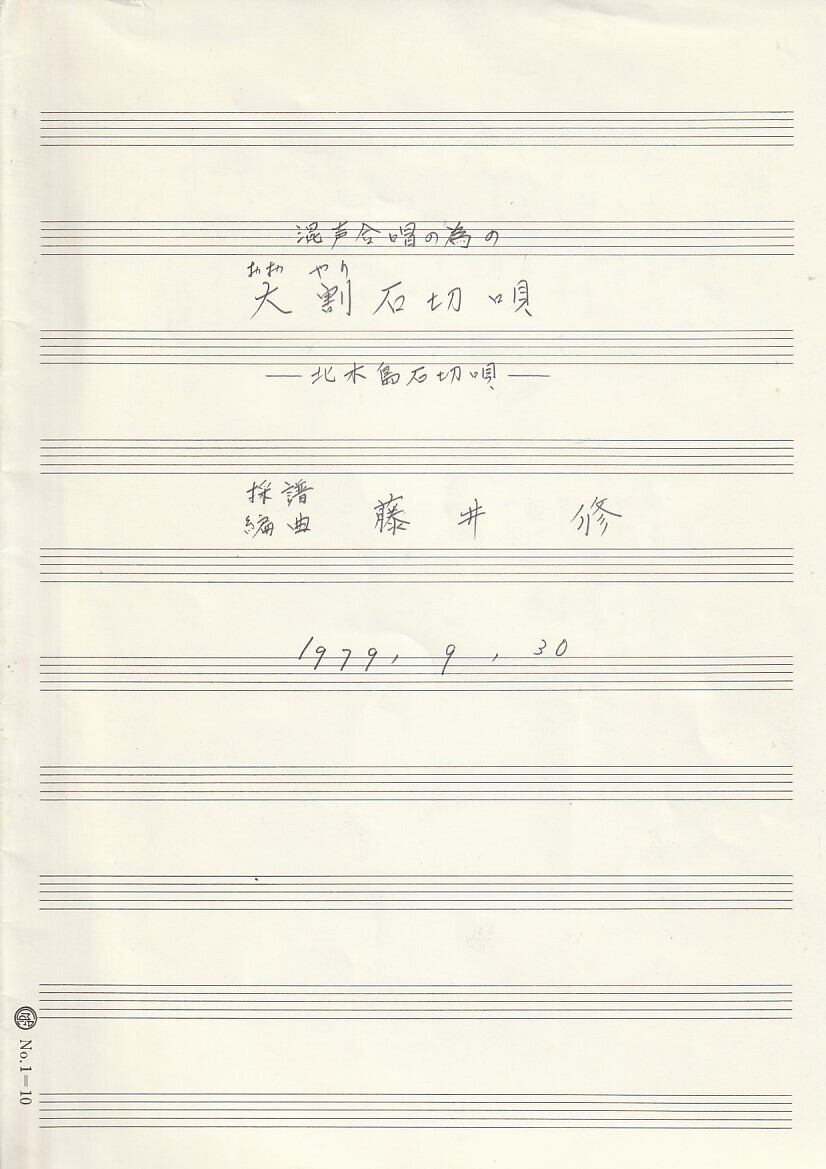 混声合唱の為の
おお やり
大割石切唄
―北木島石切唄―
採譜
編曲 藤井 修
1979, 9, 30
No.1-10